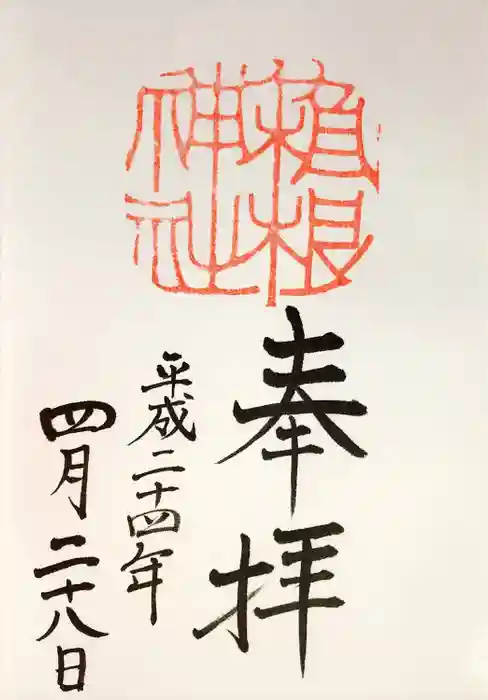 植根
神社
奉拝
平成二十四年
四月二十八日